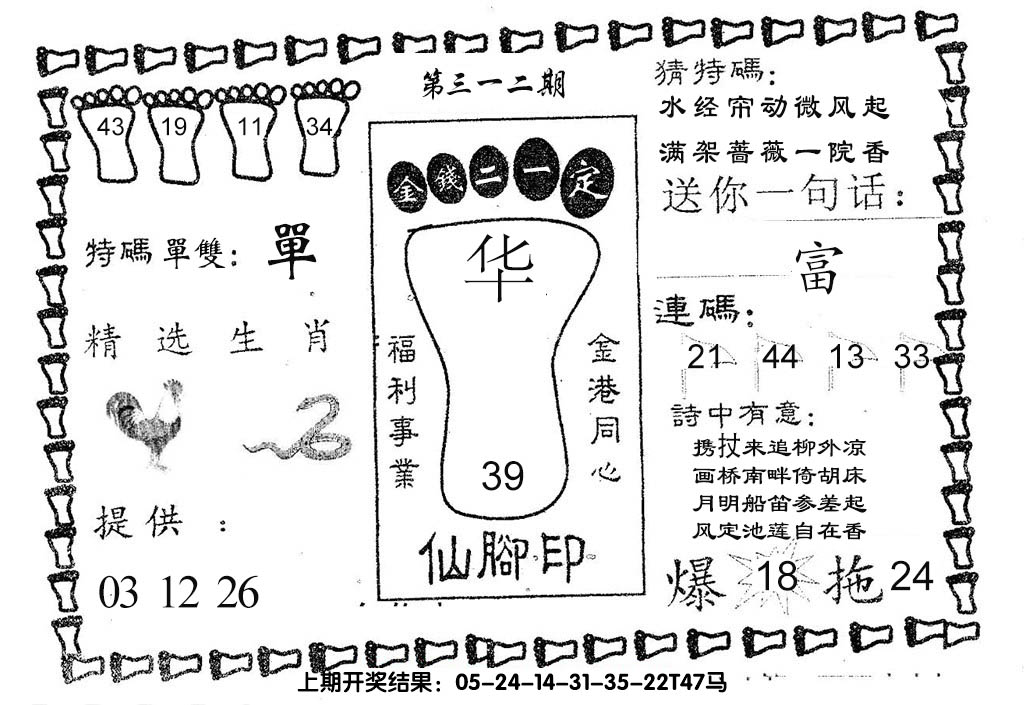 第三一二期
43 19 11 34
特碼單雙: 單
精选生肖
提供：
03 12 26
金錢二一定
华
福利事業
金港同心
39
仙腳印
猜特碼:
水经帘动微风起
满架蔷薇一院香
送你一句话：
富
連碼:
21 44 13 33
詩中有意:
携扙来追柳外凉
画桥南畔倚胡床
月明船笛参差起
风定池莲自在香
爆 18 拖 24
上期开奖结果：05-24-14-31-35-22T47马